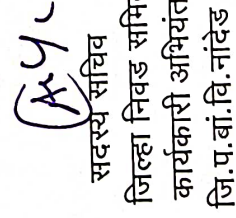 सदस्य सचिव
जिल्हा निवड समि
कार्यकारी अभियंत
जि.प.बां.वि.नांदेड